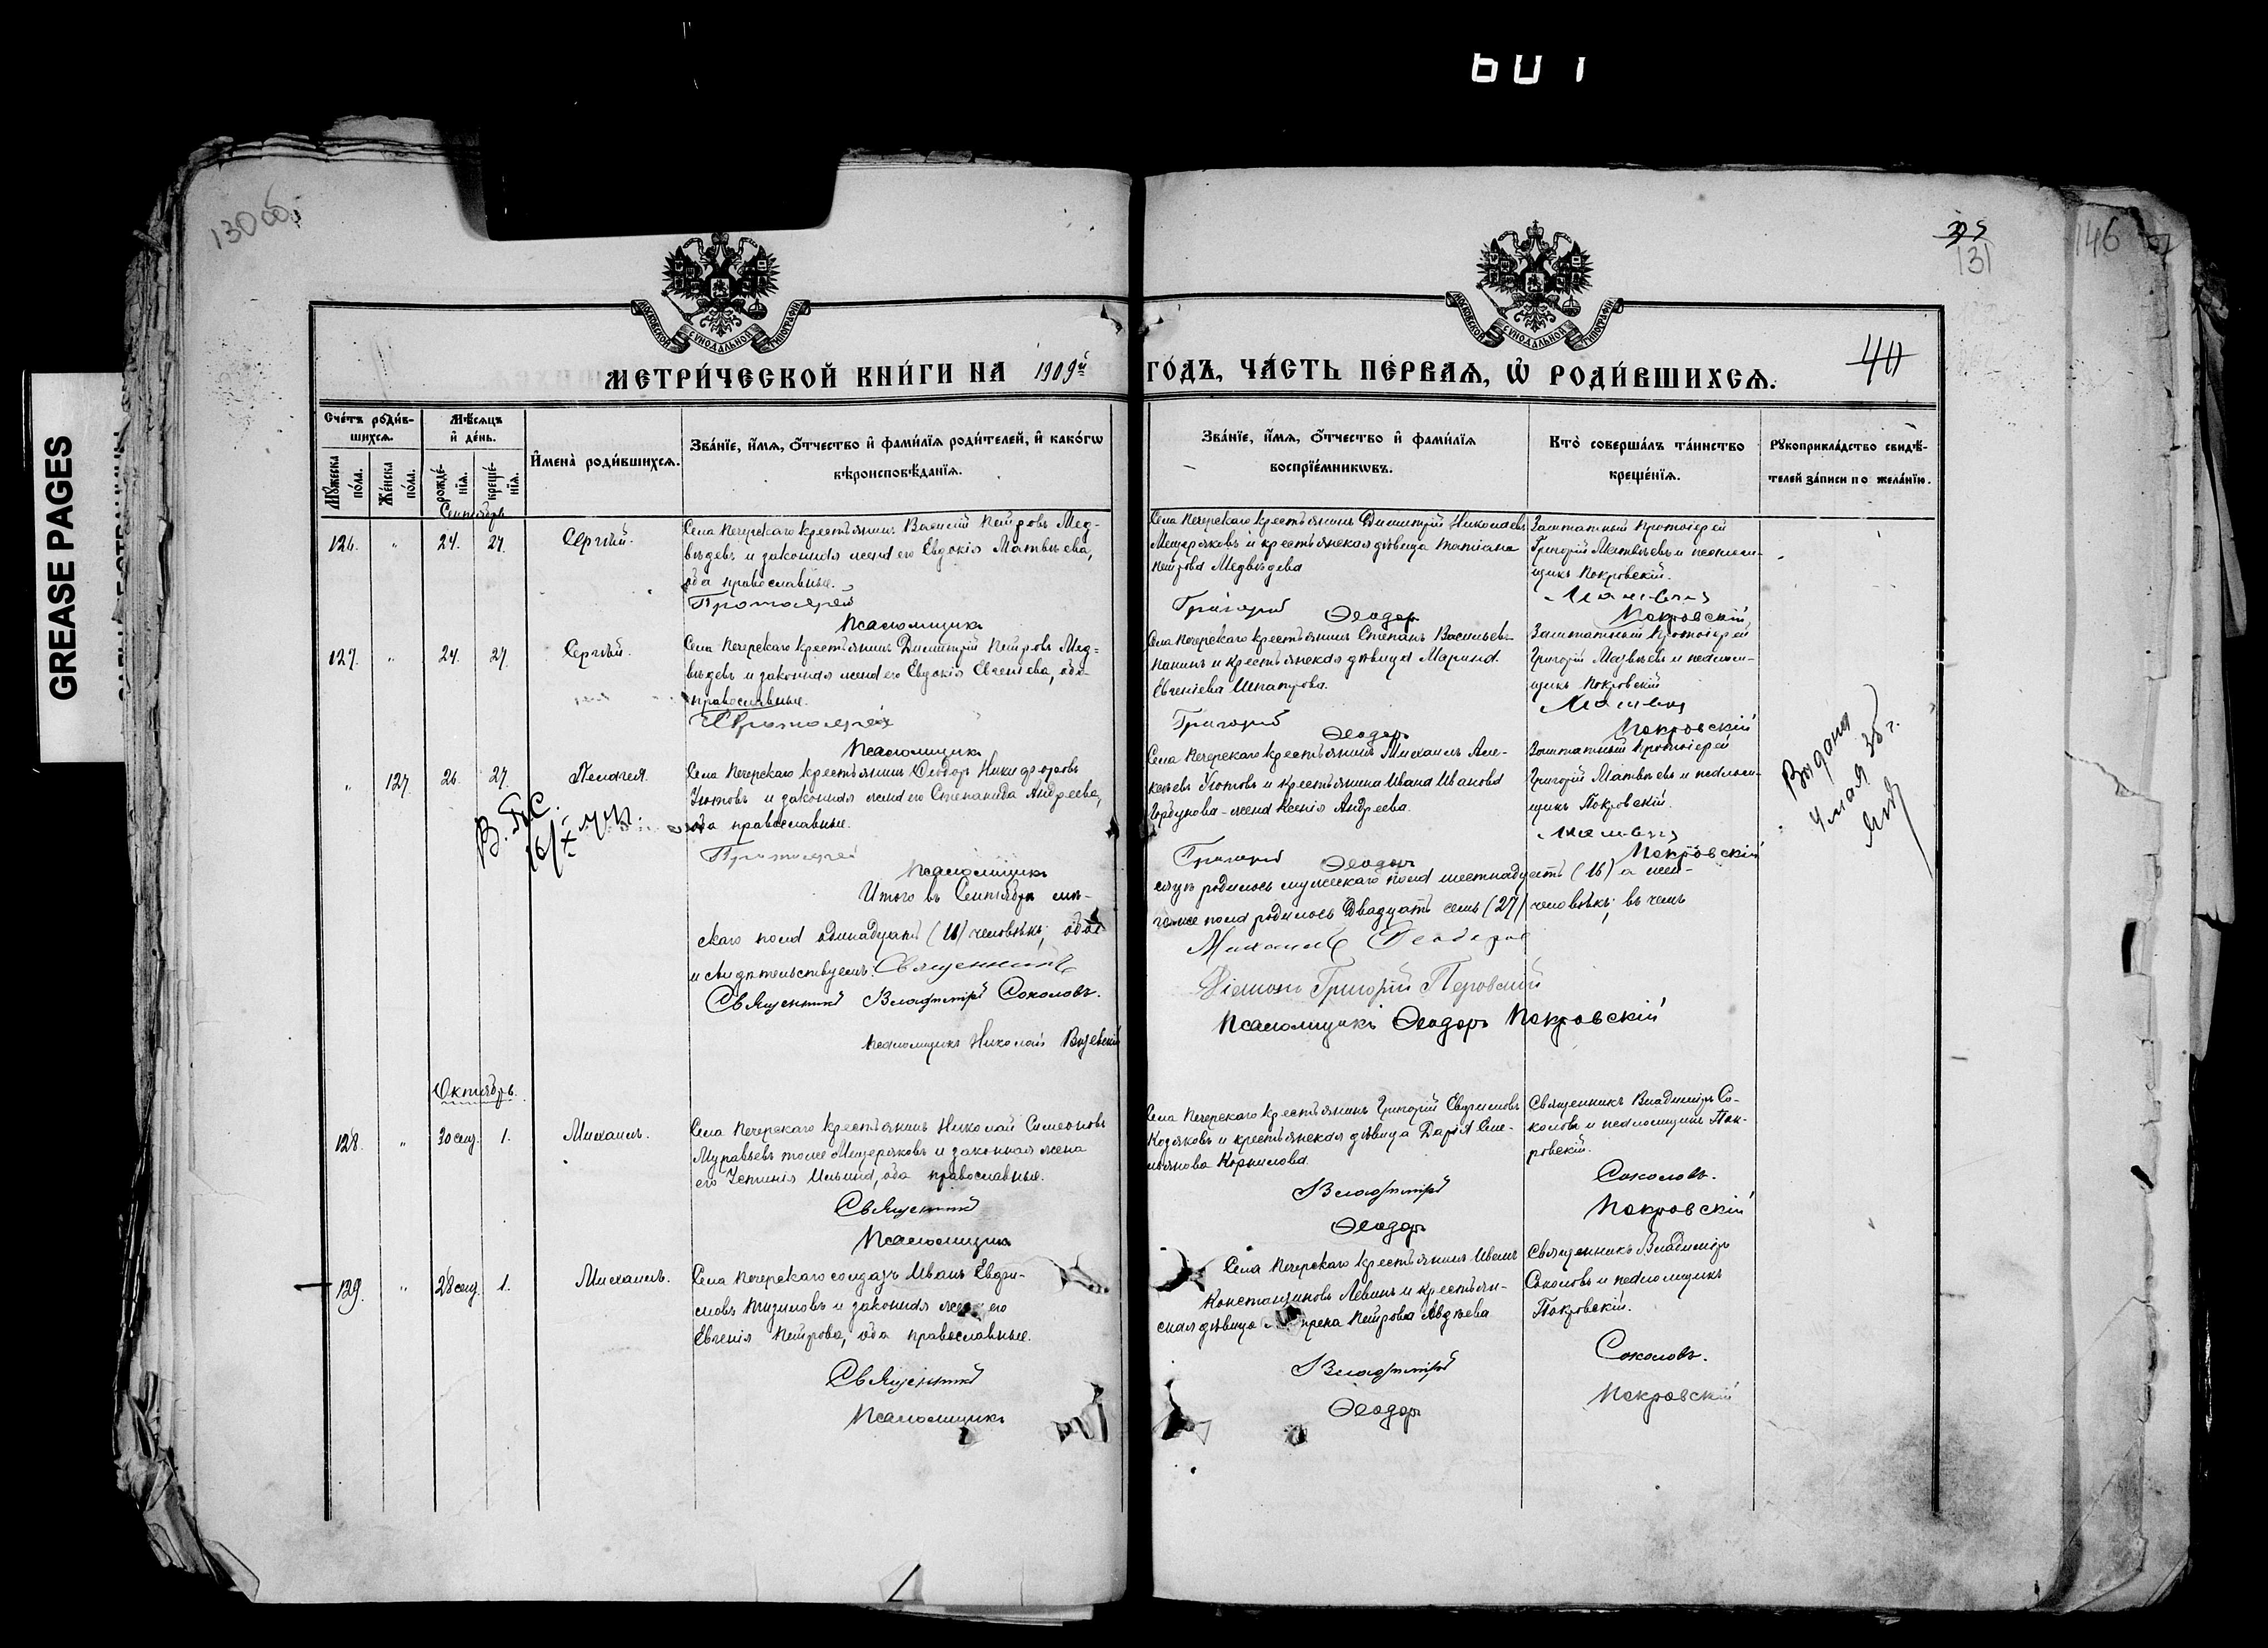 601
GREASE PAGES
130 об.
35
131
146
МОСКОВСКОЙ СѴНОДАЛЬНОЙ ТИПОГРАФІИ
МОСКОВСКОЙ СѴНОДАЛЬНОЙ ТИПОГРАФІИ
МЕТРИ́ЧЕСКОЙ КНИ́ГИ НА 1909й ГО́ДЪ, ЧА́СТЬ ПЕ́РВАЯ, Ѡ҆ РОДИ́ВШИХСЯ.
40
Сче́тъ роди́в-
шихся.
Мѣ́сяцъ
и҆ де́нь.
Мꙋ́жеска
по́ла.
Же́нска
по́ла.
рожде́-
нїя.
креще́-
нїя.
И҆мена̀ роди́вшихся.
Зва́нїе, и҆́мя, ѻ҆́тчество и҆ фами́лїя роди́телей, и҆ како́гѡ
вѣроисповѣ́данїя.
Зва́нїе, и҆́мя, ѻ҆́тчество и҆ фами́лїя
воспрїе́мникѡвъ.
Кто̀ соверша́лъ та́инство
креще́нїя.
Рꙋкоприкла́дство свидѣ́-
телей за́писи по жела́нїю.
Сентябрь
126. " 24. 27. Сергѣй.
Села Печерскаго крестьянинъ Василій Петровъ Мед-
вѣдевъ и законная жена его Евдокія Матвѣева,
оба православные.
Протоіерей
Псаломщикъ
Села Печерскаго крестьянинъ Димитрій Николаевъ
Мещеряковъ и крестьянская дѣвица Татіана
Петрова Медвѣдева
Григорій
Ѳеодоръ
Заштатный Протоіерей
Григорій Матвѣевъ и псалом-
щикъ Покровскій.
Матвѣевъ
Покровскій
127. " 24. 27. Сергѣй.
Села Печерскаго крестьянинъ Димитрій Петровъ Мед-
вѣдевъ и законная жена его Евдокія Евгеніева, оба
православные.
Протоіерей
Псаломщикъ
Села Печерскаго крестьянинъ Степанъ Васильевъ
Панинъ и крестьянская дѣвица Марина
Евгеніева Шпатрова.
Григорій
Ѳеодоръ
Заштатный Протоіерей
Григорій Матвѣевъ и псалом-
щикъ Покровскій
Матвѣевъ
Покровскій
" 127. 26. 27. Пелагея.
Села Печерскаго крестьянинъ Ѳеодоръ Никифоровъ
Утовъ и законная жена его Степанида Андреева,
оба православные.
Протоіерей
Псаломщикъ
Села Печерскаго крестьянинъ Михаилъ Але-
ксѣевъ Утовъ и крестьянина Ивана Иванова
Горбунова - жена Ксенія Андреева.
Григорій
Ѳеодоръ
Заштатный Протоіерей
Григорій Матвѣевъ и псалом-
щикъ Покровскій.
Матвѣевъ
Покровскій
Выдана
4 мая 35 г.
Итого въ Сентябрѣ мѣ-
сяцѣ родилось мужескаго пола шестнадцать (16) а жен-
скаго пола одинадцать (11) человѣкъ; обое-
го же пола родилось двадцать семь (27) человѣкъ; въ чемъ
и свидѣтельствуемъ: Священникъ
Михаилъ Ѳеодоровъ
Священникъ Владиміръ Соколовъ.
Діаконъ Григорій Перовскій
Псаломщикъ Николай
Псаломщикъ Ѳеодоръ Покровскій
Октябрь.
128. " 30 сент. 1. Михаилъ.
Села Печерскаго крестьянинъ Николай Симеоновъ
Муравьевъ тоже Мещеряковъ и законная жена
его Устинія Ильина, оба православные.
Священникъ
Псаломщикъ
Села Печерскаго крестьянинъ Григорій Евфимовъ
Козяковъ и крестьянская дѣвица Дарія Еме-
льянова Корнилова.
Владиміръ
Ѳеодоръ
Священникъ Владиміръ Со-
коловъ и псаломщикъ Пок-
ровскій.
Соколовъ.
Покровскій
129. " 28 сент. 1. Михаилъ.
Села Печерскаго солдатъ Иванъ Евфи-
мовъ и законная жена его
Евгенія Петрова, оба православные.
Священникъ
Псаломщикъ
Села Печерскаго крестьянинъ Иванъ
Константиновъ Левинъ и крестьян-
ская дѣвица Петрова Авдѣева
Владиміръ
Ѳеодоръ
Священникъ Владиміръ
Соколовъ и псаломщикъ
Покровскій.
Соколовъ.
Покровскій